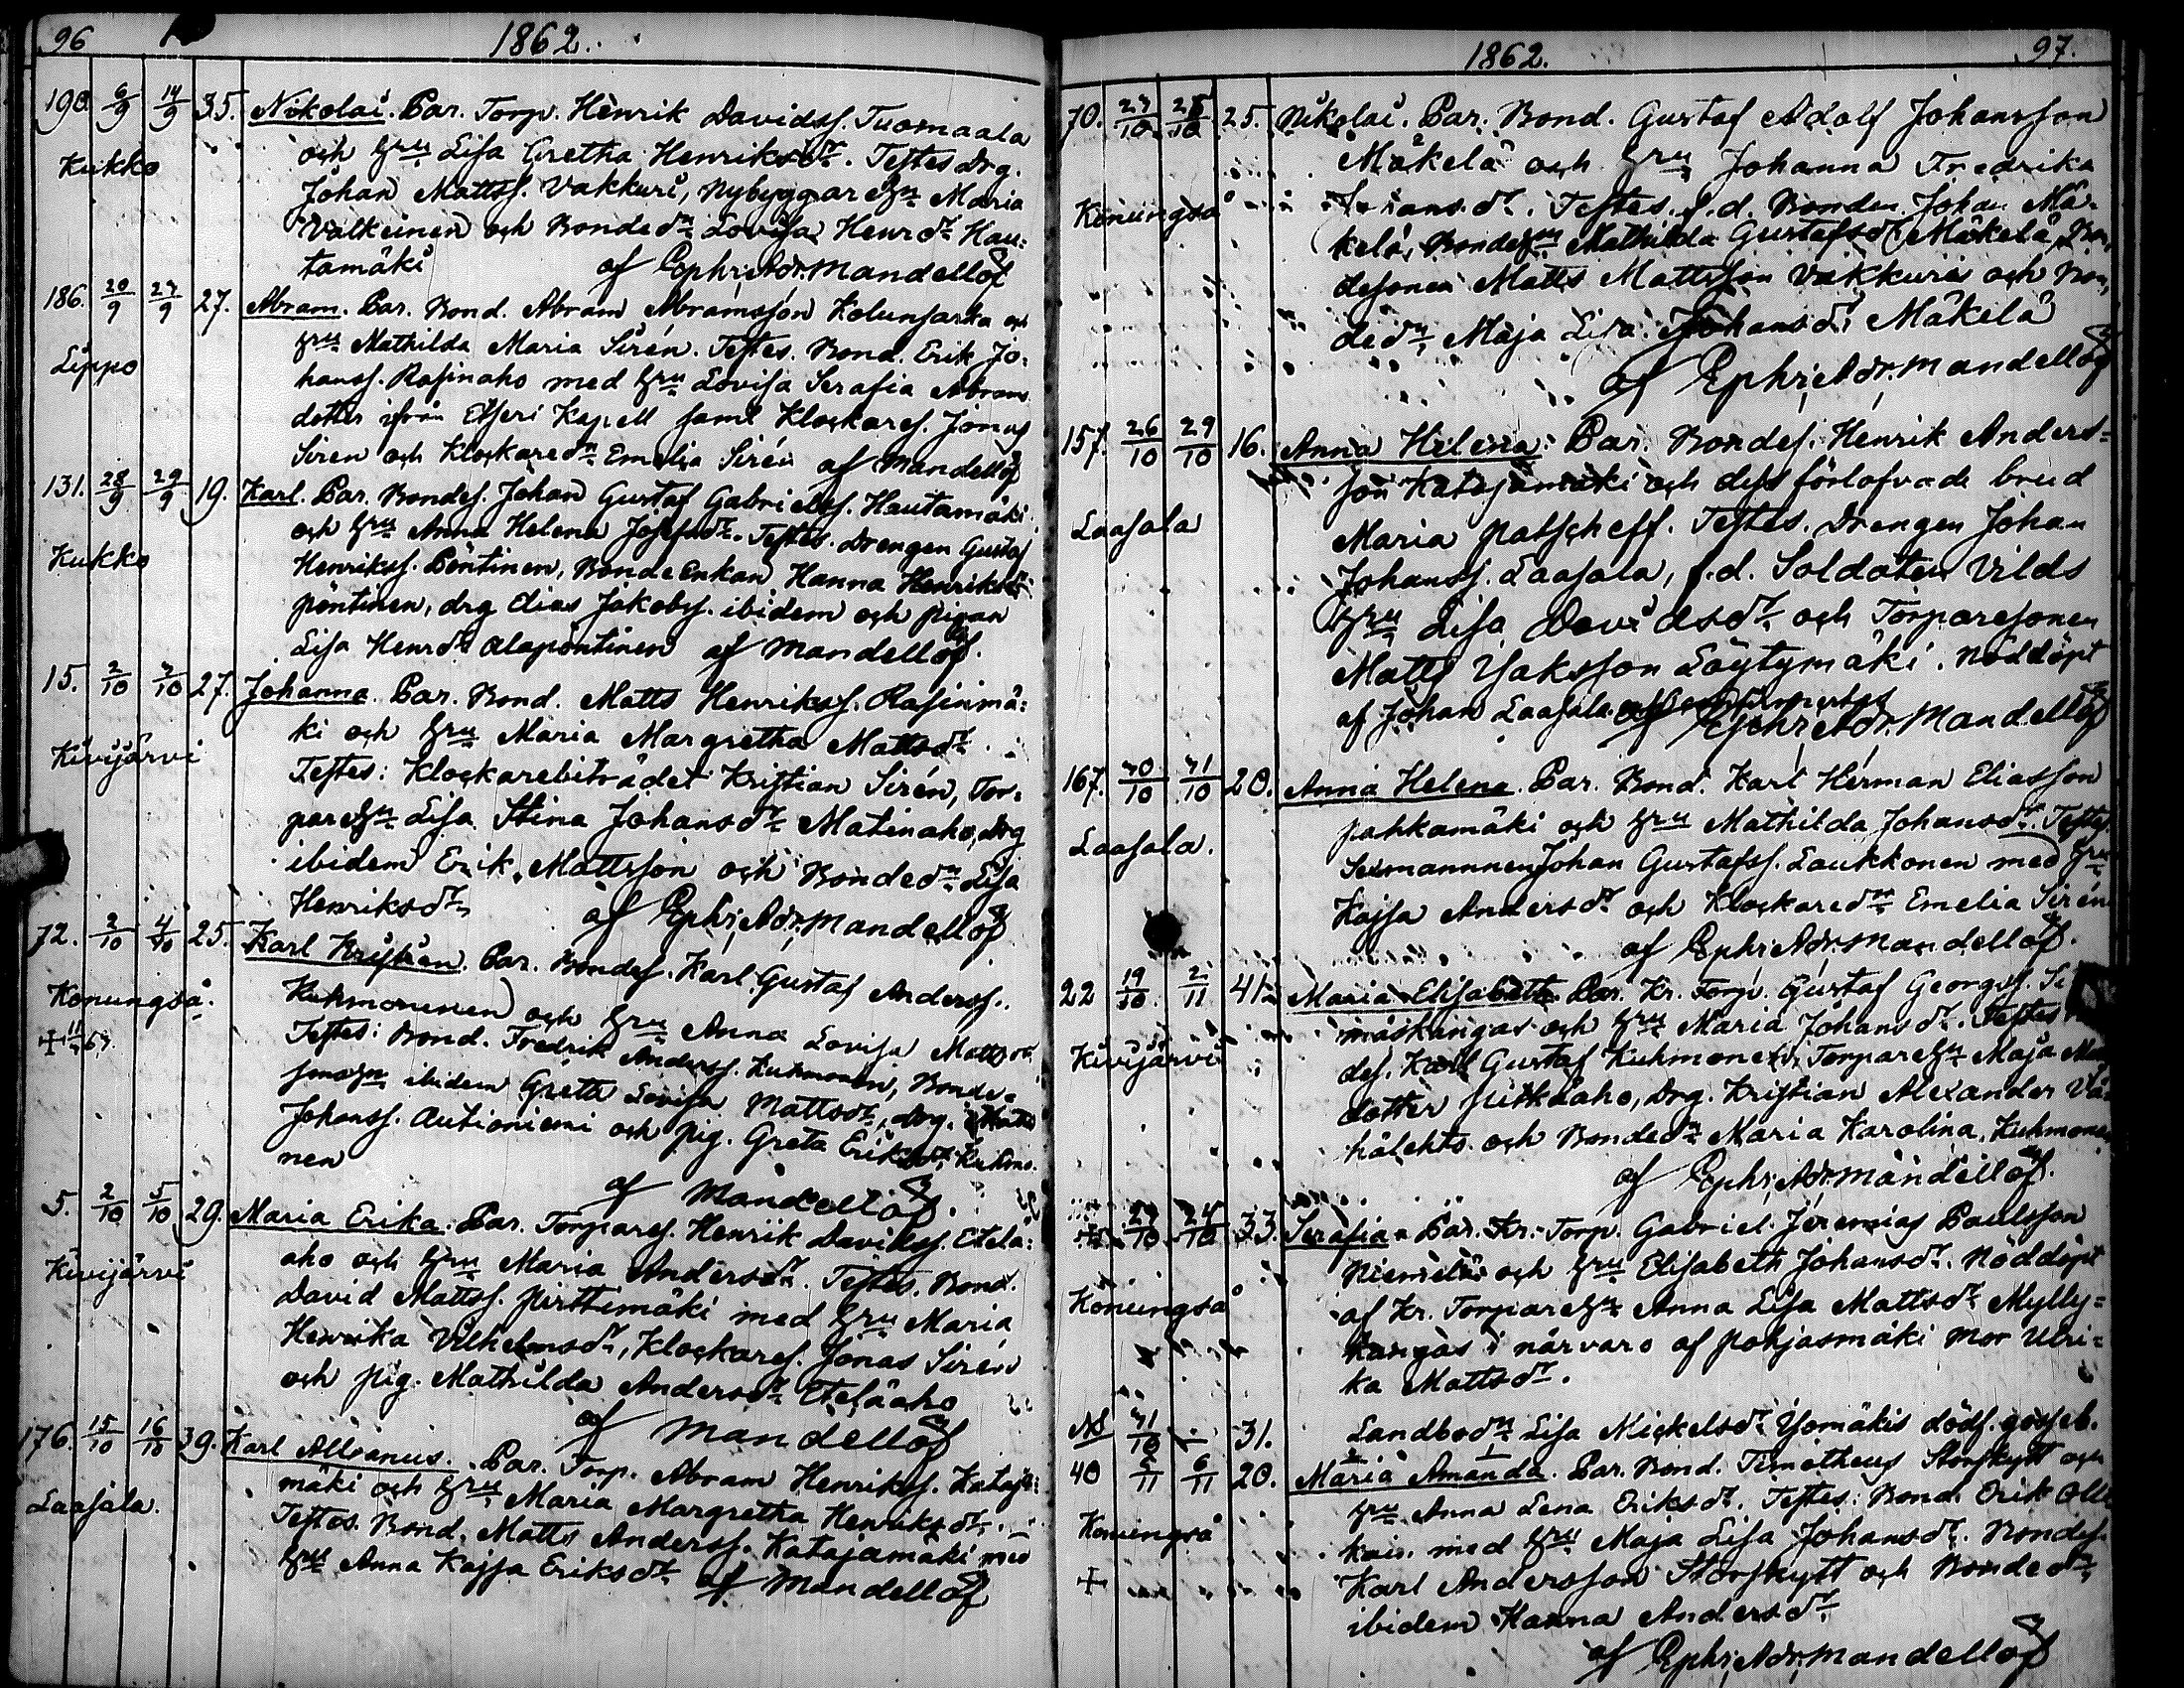 96
1862.
190. 6/9 14/9 35. Nikolai. Par. Torp. Henrik Davidss. Tuomaala
och hru Lisa Gretha Henriksdr. Testes Drg.
Kukko
Johan Mattss. Vakkuri, Nybyggarehn Maria
Valkeinen och Bondedn Lovisa Henrdr Hau-
tamäki af Ephr. Adr. Mandellöf
186. 20/9 27/9 27. Abram. Par. Bond. Abram Abramsson Kolunsarka och
hru Mathilda Maria Sirén. Testes. Bond. Erik Jo-
Lippo
hanss. Rasinaho med hru Lovisa Serafia Abrams
dotter ifrån Etseri Kapell samt Klockares. Jonas
Siren och Klockaredn Emelia Sirén af Mandellöf
131. 28/9 29/9 19. Karl. Par. Bondes. Johan Gustaf Gabrielss. Hautamäki
och hru Anna Helena Josefsdr. Testes. Drengen Gustaf
Kukko
Henrikss. Pöntinen, BondeEnkan Hanna Henriksdr
Pöntinen, drg Elias Jakobss. ibidem och pigan
Lisa Henrdr Alapöntinen af Mandellöf.
15. 2/10 7/10 27. Johanna. Par. Bond. Matts Henrikss. Rasinmä-
ki och hru Maria Margretha Mattsdr
Kivijärvi
Testes: Klockarebiträdet Kristian Sirén, Tor-
parehn Lisa Stina Johansdr Matinaho, Drg
ibidem Erik Mattsson och Bondedn Lisa
Henriksdr af Ephr. Adr. Mandellöf
72. 2/10 4/10 25. Karl Kristian. Par. Bondes. Karl Gustaf Anderss.
Konungså.
Kuhmonen och hru Anna Lovisa Mattsdr
Testes: Bond. Fredrik Anderss. Kuhmonen, Bonde-
sonehn ibidem Greta Lovisa Mattsdr, drg. Matts
Johanss. Autioniemi och pig. Greta Eriksdr Kuhmo-
nen
af Mandellöf.
5. 2/10 5/10 29. Maria Erika. Par. Torpares. Henrik Davidss. Etelä-
aho och hru Maria Andersdr. Testes. Bond.
Kivijärvi
David Mattss. Pirttimäki med hru Maria
Henrika Vilhelmsdr, Klockares. Jonas Sirén
och pig. Mathilda Andersdr Eteläaho
af Mandellöf
176. 15/10 16/10 39. Karl Albanus. Par. Torp. Abram Henrikss. Kataja-
mäki och hru Maria Margretha Henriksdr.
Laasala.
Testes. Bond. Matts Anderss. Katajamäki med
hru Anna Kajsa Eriksdr af Mandellöf
1862.
97.
70. 27/10 28/10 25. Nikolai. Par. Bond. Gustaf Adolf Johansson
Mäkelä och hru Johanna Fredrika
Konungså
Johansdr. Testes. f.d. Bonden Johan Mä-
kelä, Bondehru Mathilda Gustafsdr Mäkelä, Bon-
desonen Matts Mattsson Vakkuri och Bon-
dedn Maja Lisa Johansdr Mäkelä
af Ephr. Adr. Mandellöf
157. 26/10 29/10 16. Anna Helena. Par. Bondes. Henrik Anders-
son Katajamäki och dess förlofvade brud
Laasala
Maria Patscheff. Testes. Drengen Johan
Johanss. Laasala, f.d. Soldaten Vilds
hru Lisa Davidsdr och Torparesonen
Matts Isaksson Löytymäki. Nöddöpt
af Johan Laasala
af Ephr. Adr. Mandellöf
167. 30/10 31/10 20. Anna Helena. Par. Bond. Karl Herman Eliasson
Pahkamäki och hru Mathilda Johansdr. Testes.
Laasala.
Sexmannnen Johan Gustafss. Laukkonen med hru
Kajsa Andersdr och Klockaredn Emelia Sirén
af Ephr. Adr. Mandellöf.
22 19/10 2/11 41. Maria Elisabeth Par. Kr. Torp. Gustaf Georgss.
mäskangas och hru Maria Johansdr. Testes
Kivijärvi
des. Karl Gustaf Kuhmonen, Torparehn Maja
dotter Pitkäaho, Drg. Kristian Alexander
hälehto och Bondedn Maria Karolina Kuhmonen
af Ephr. Adr. Mandellöf.
27/10 24/10 33. Serafia. Par. Kr. Torp. Gabriel Jeremias Paulsson
Niemelä och hru Elisabeth Johansdr. Nöddöpt
Konungså
af Kr. Torparehn Anna Lisa Mattsdr Mylly-
kangas i närvaro af Pohjasmäki mor Ulri-
ka Mattsdr.
NB 31/10 — 31. Landbodn Lisa Nickelsdr Isomäkis dödf. gosseb.
40 2/11 6/11 20. Maria Amanda. Par. Bond. Timotheus Storskytt och
hru Anna Lena Eriksdr. Testes: Bond. Erik Olli
Konungså
kais. med hru Maja Lisa Johansdr. Bondes.
Karl Andersson Storskytt och Bondedn
ibidem Hanna Andersdr
af Ephr. Adr. Mandellöf